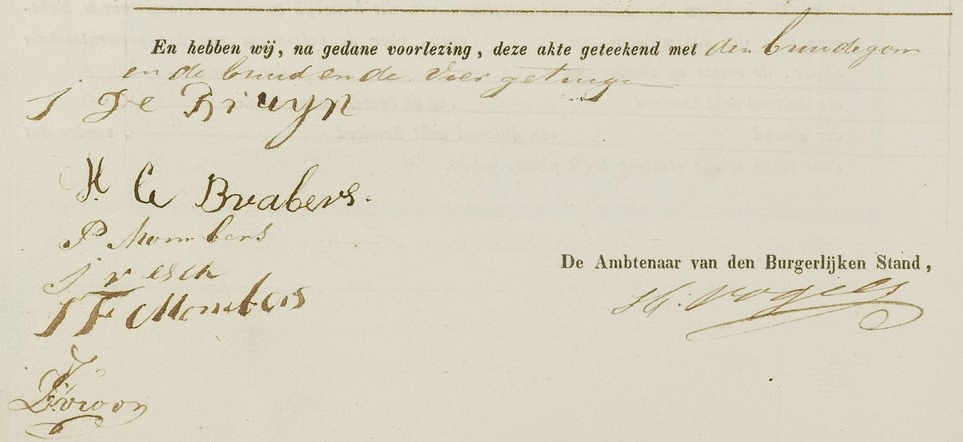 En hebben wij, na gedane voorlezing, deze akte geteekend met den bruidegom
en de bruid en de vier getuige
J De Bruyn
H. C Brabers.
P Mombers
J v esch
J F Mombers
De Ambtenaar van den Burgerlijken Stand,